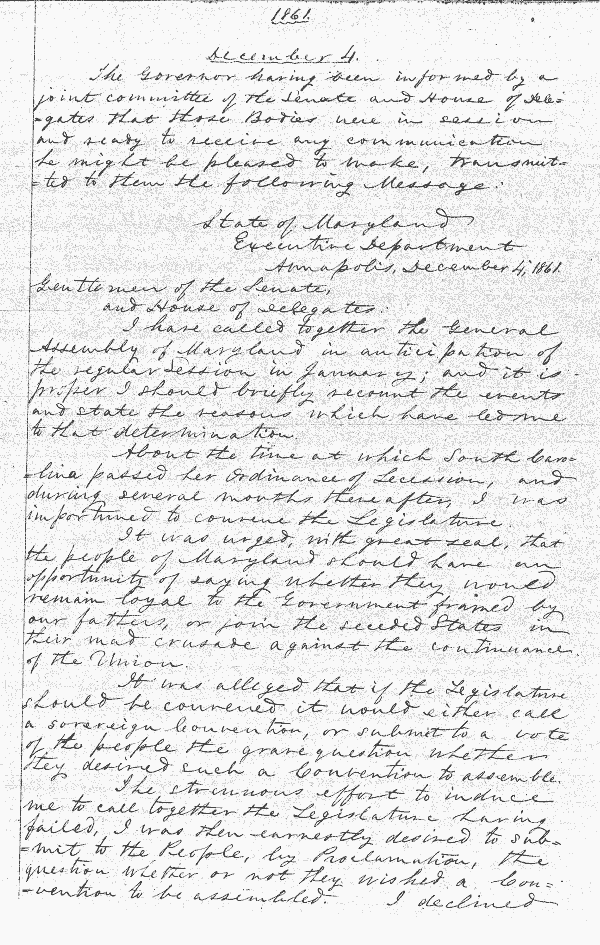 1861.
December 4.
The Governor having been informed by a
joint committee of the Senate and House of Dele=
=gates that those Bodies were in session
and ready to receive any communication
he might be pleased to make, transmit=
=ted to them the following Message:
State of Maryland
Executive Department
Annapolis, December 4, 1861.
Gentlemen of the Senate,
and House of Delegates:
I have called together the General
Assembly of Maryland in anticipation of
the regular Session in January; and it is
proper I should briefly recount the events
and state the reasons which have led me
to that determination.
About the time at which South Caro=
=lina passed her Ordinance of Secession, and
during several months thereafter, I was
importuned to convene the Legislature.
It was urged, with great zeal, that
the people of Maryland should have an
opportunity of saying whether they would
remain loyal to the Government framed by
our fathers, or join the seceded States in
their mad crusade against the continuance
of the Union.
It was alleged that if the Legislature
should be convened it would either call
a sovereign Convention, or submit to a vote
of the people the grave question whether
they desired such a Convention to assemble.
The strenuous effort to induce
me to call together the Legislature having
failed, I was then earnestly desired to sub=
=mit to the People, by Proclamation, the
question whether or not they wished a Con=
=vention to be assembled. I declined